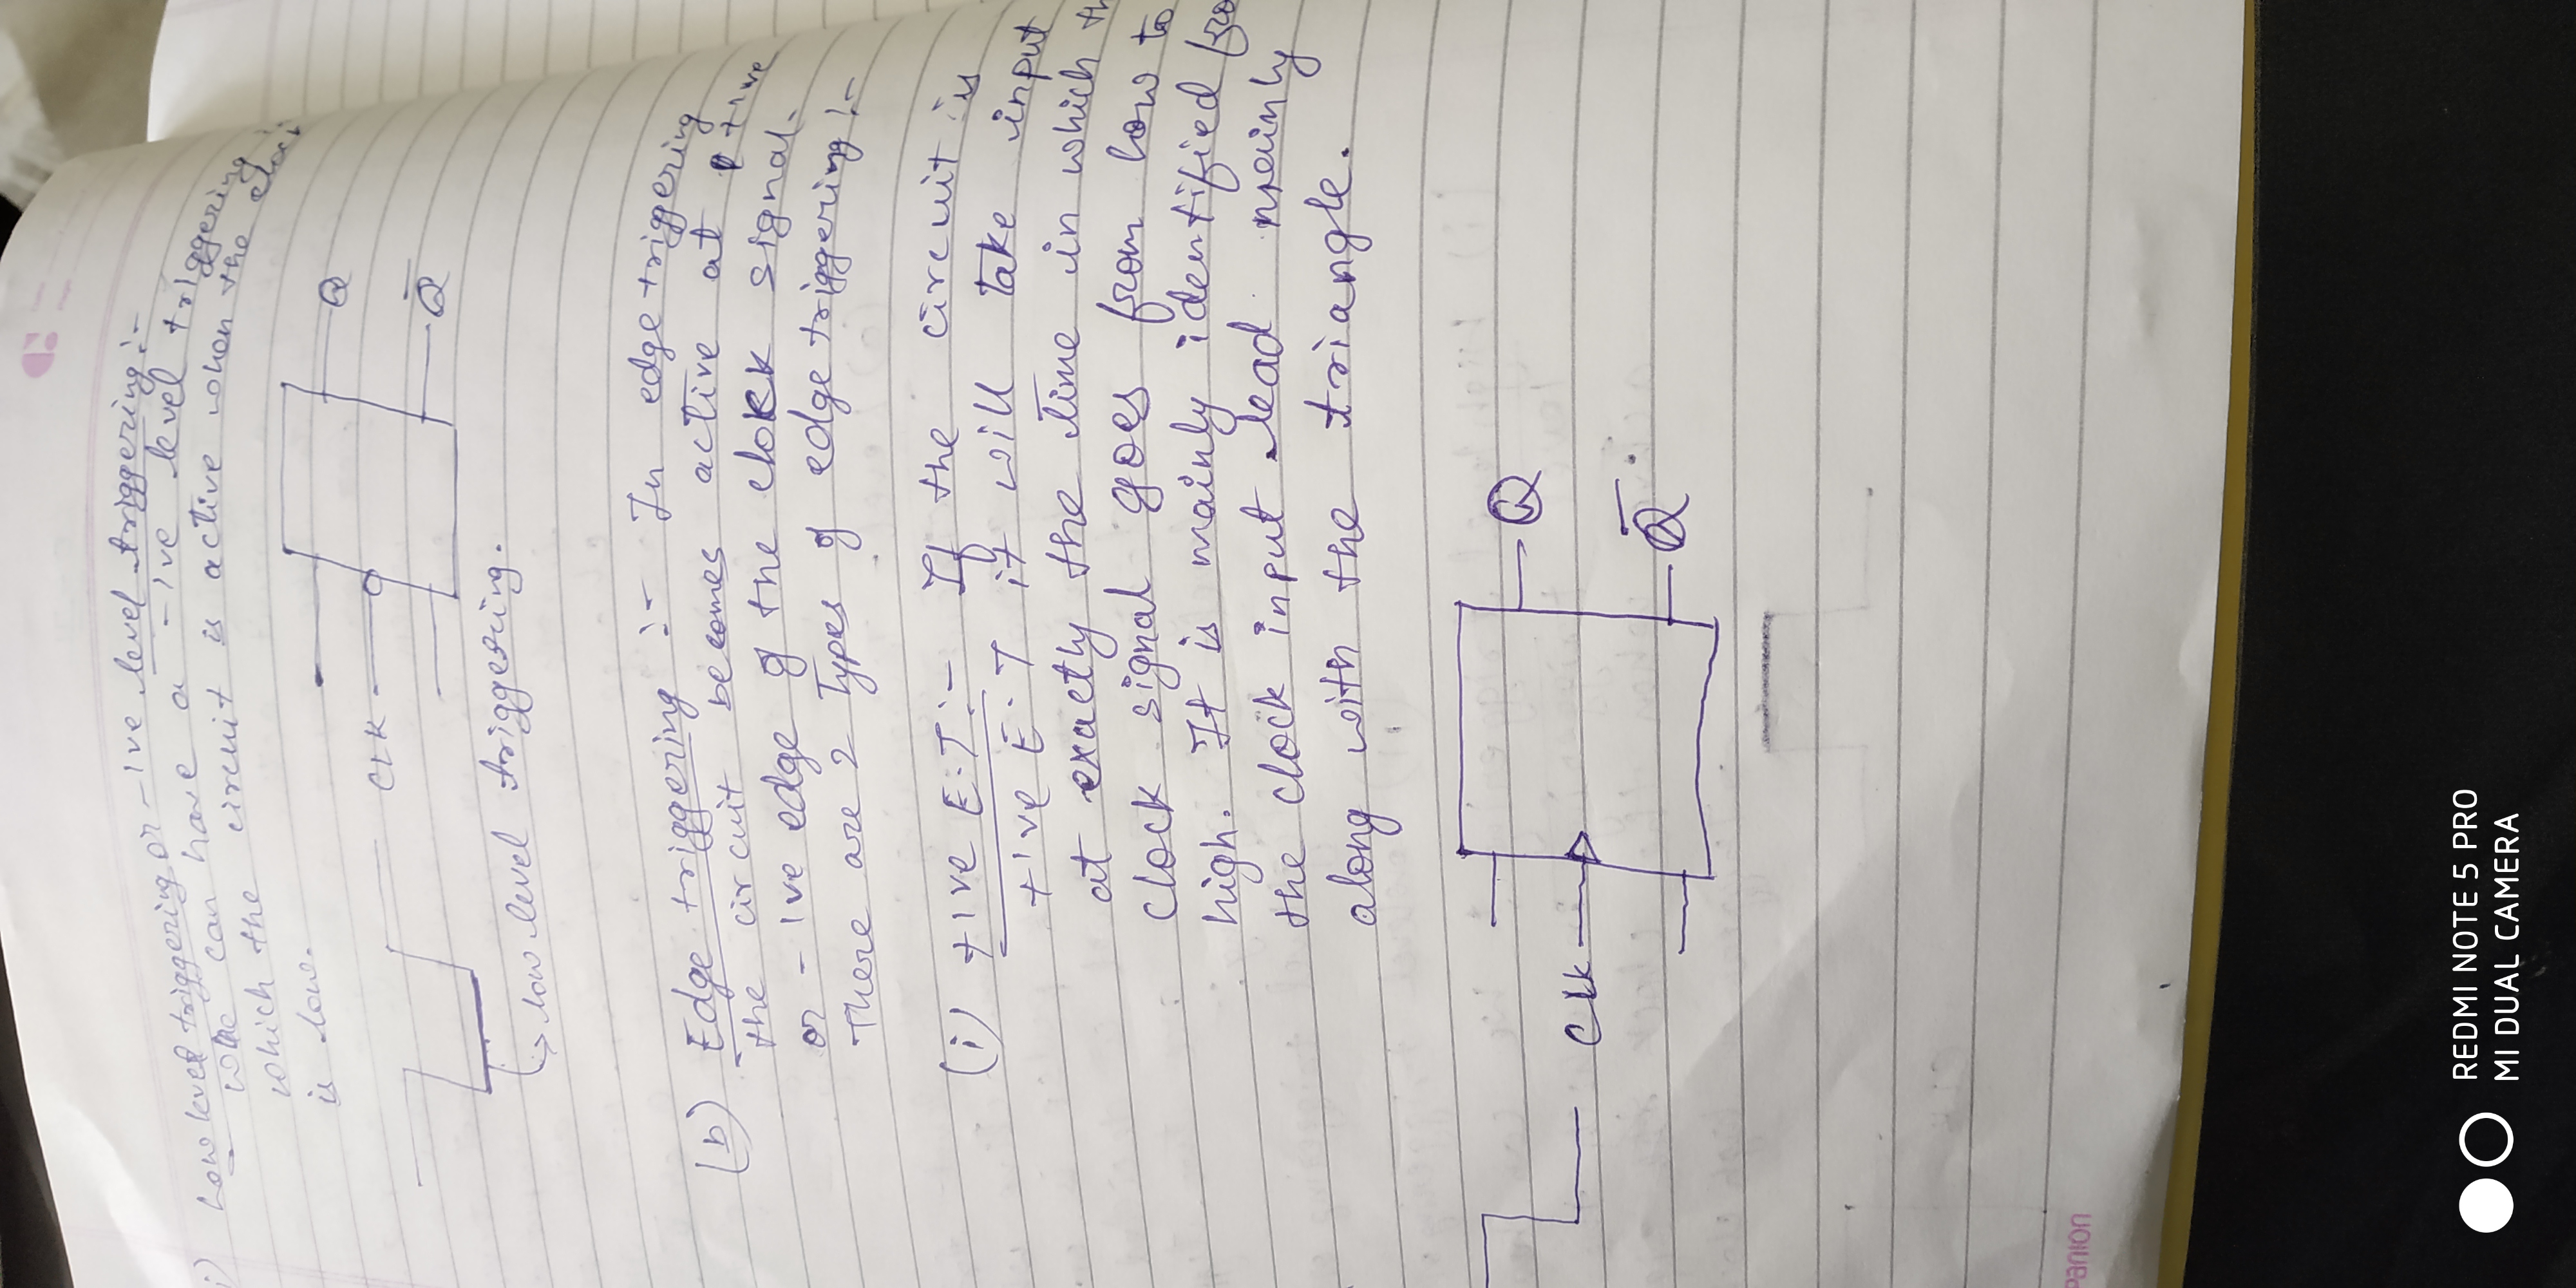 Low level triggering or -ive level triggering :-
we can have a -ive level triggering
which the circuit is active when the
is low.
CLK
Q
Q̅
→ low level triggering.
(b) Edge triggering :- In edge triggering
the circuit becomes active at +ive
or -ive edge of the clock signal.
There are 2 Types of edge triggering :-
(i) +ive E.T :- If the circuit is
+ive E.T it will take input
at exactly the time in which th
clock signal goes from low to
high. It is mainly identified fro
the clock input lead mainly
along with the triangle.
Q
Clk
Q̅
panion
REDMI NOTE 5 PRO
MI DUAL CAMERA